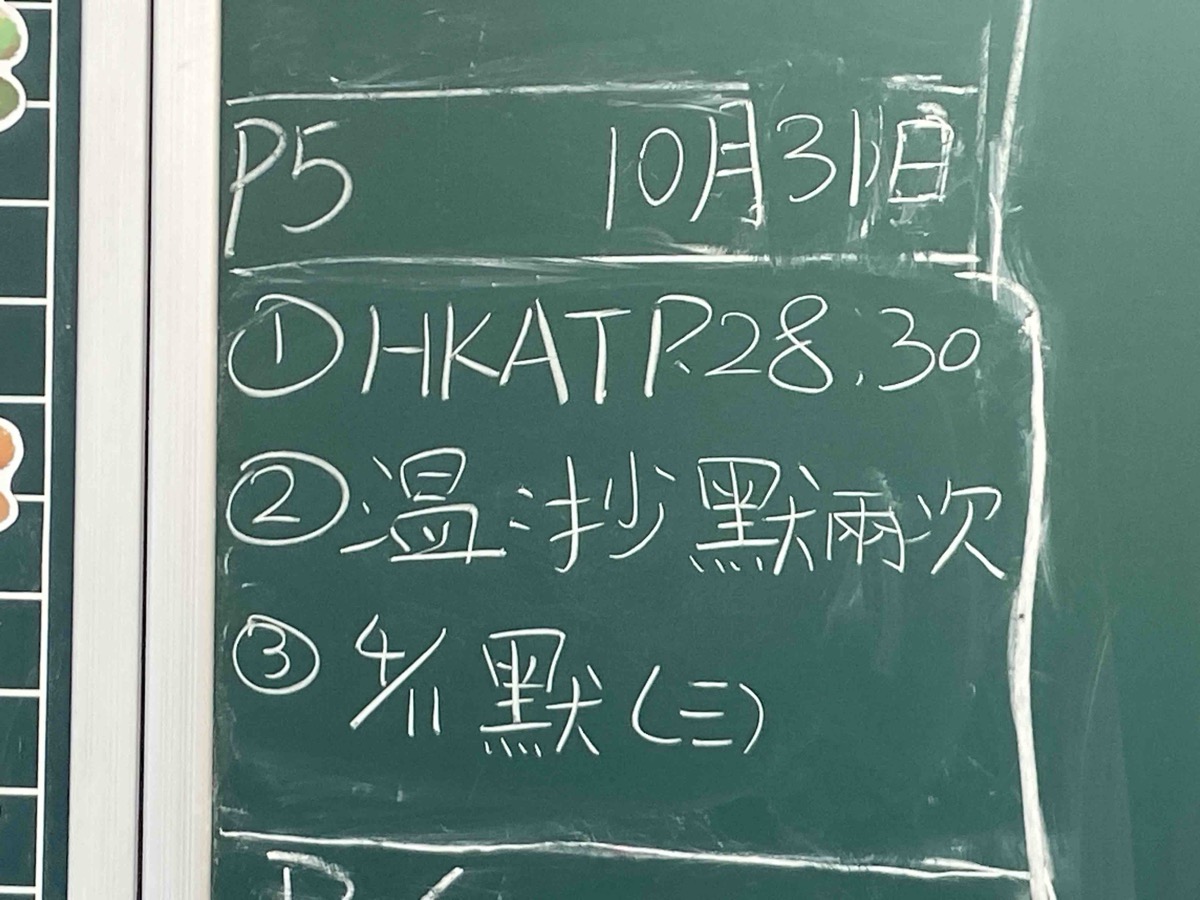 P5 10月31日
① HKAT P.28.30
② 溫:抄默兩次
③ 4/11 默(三)